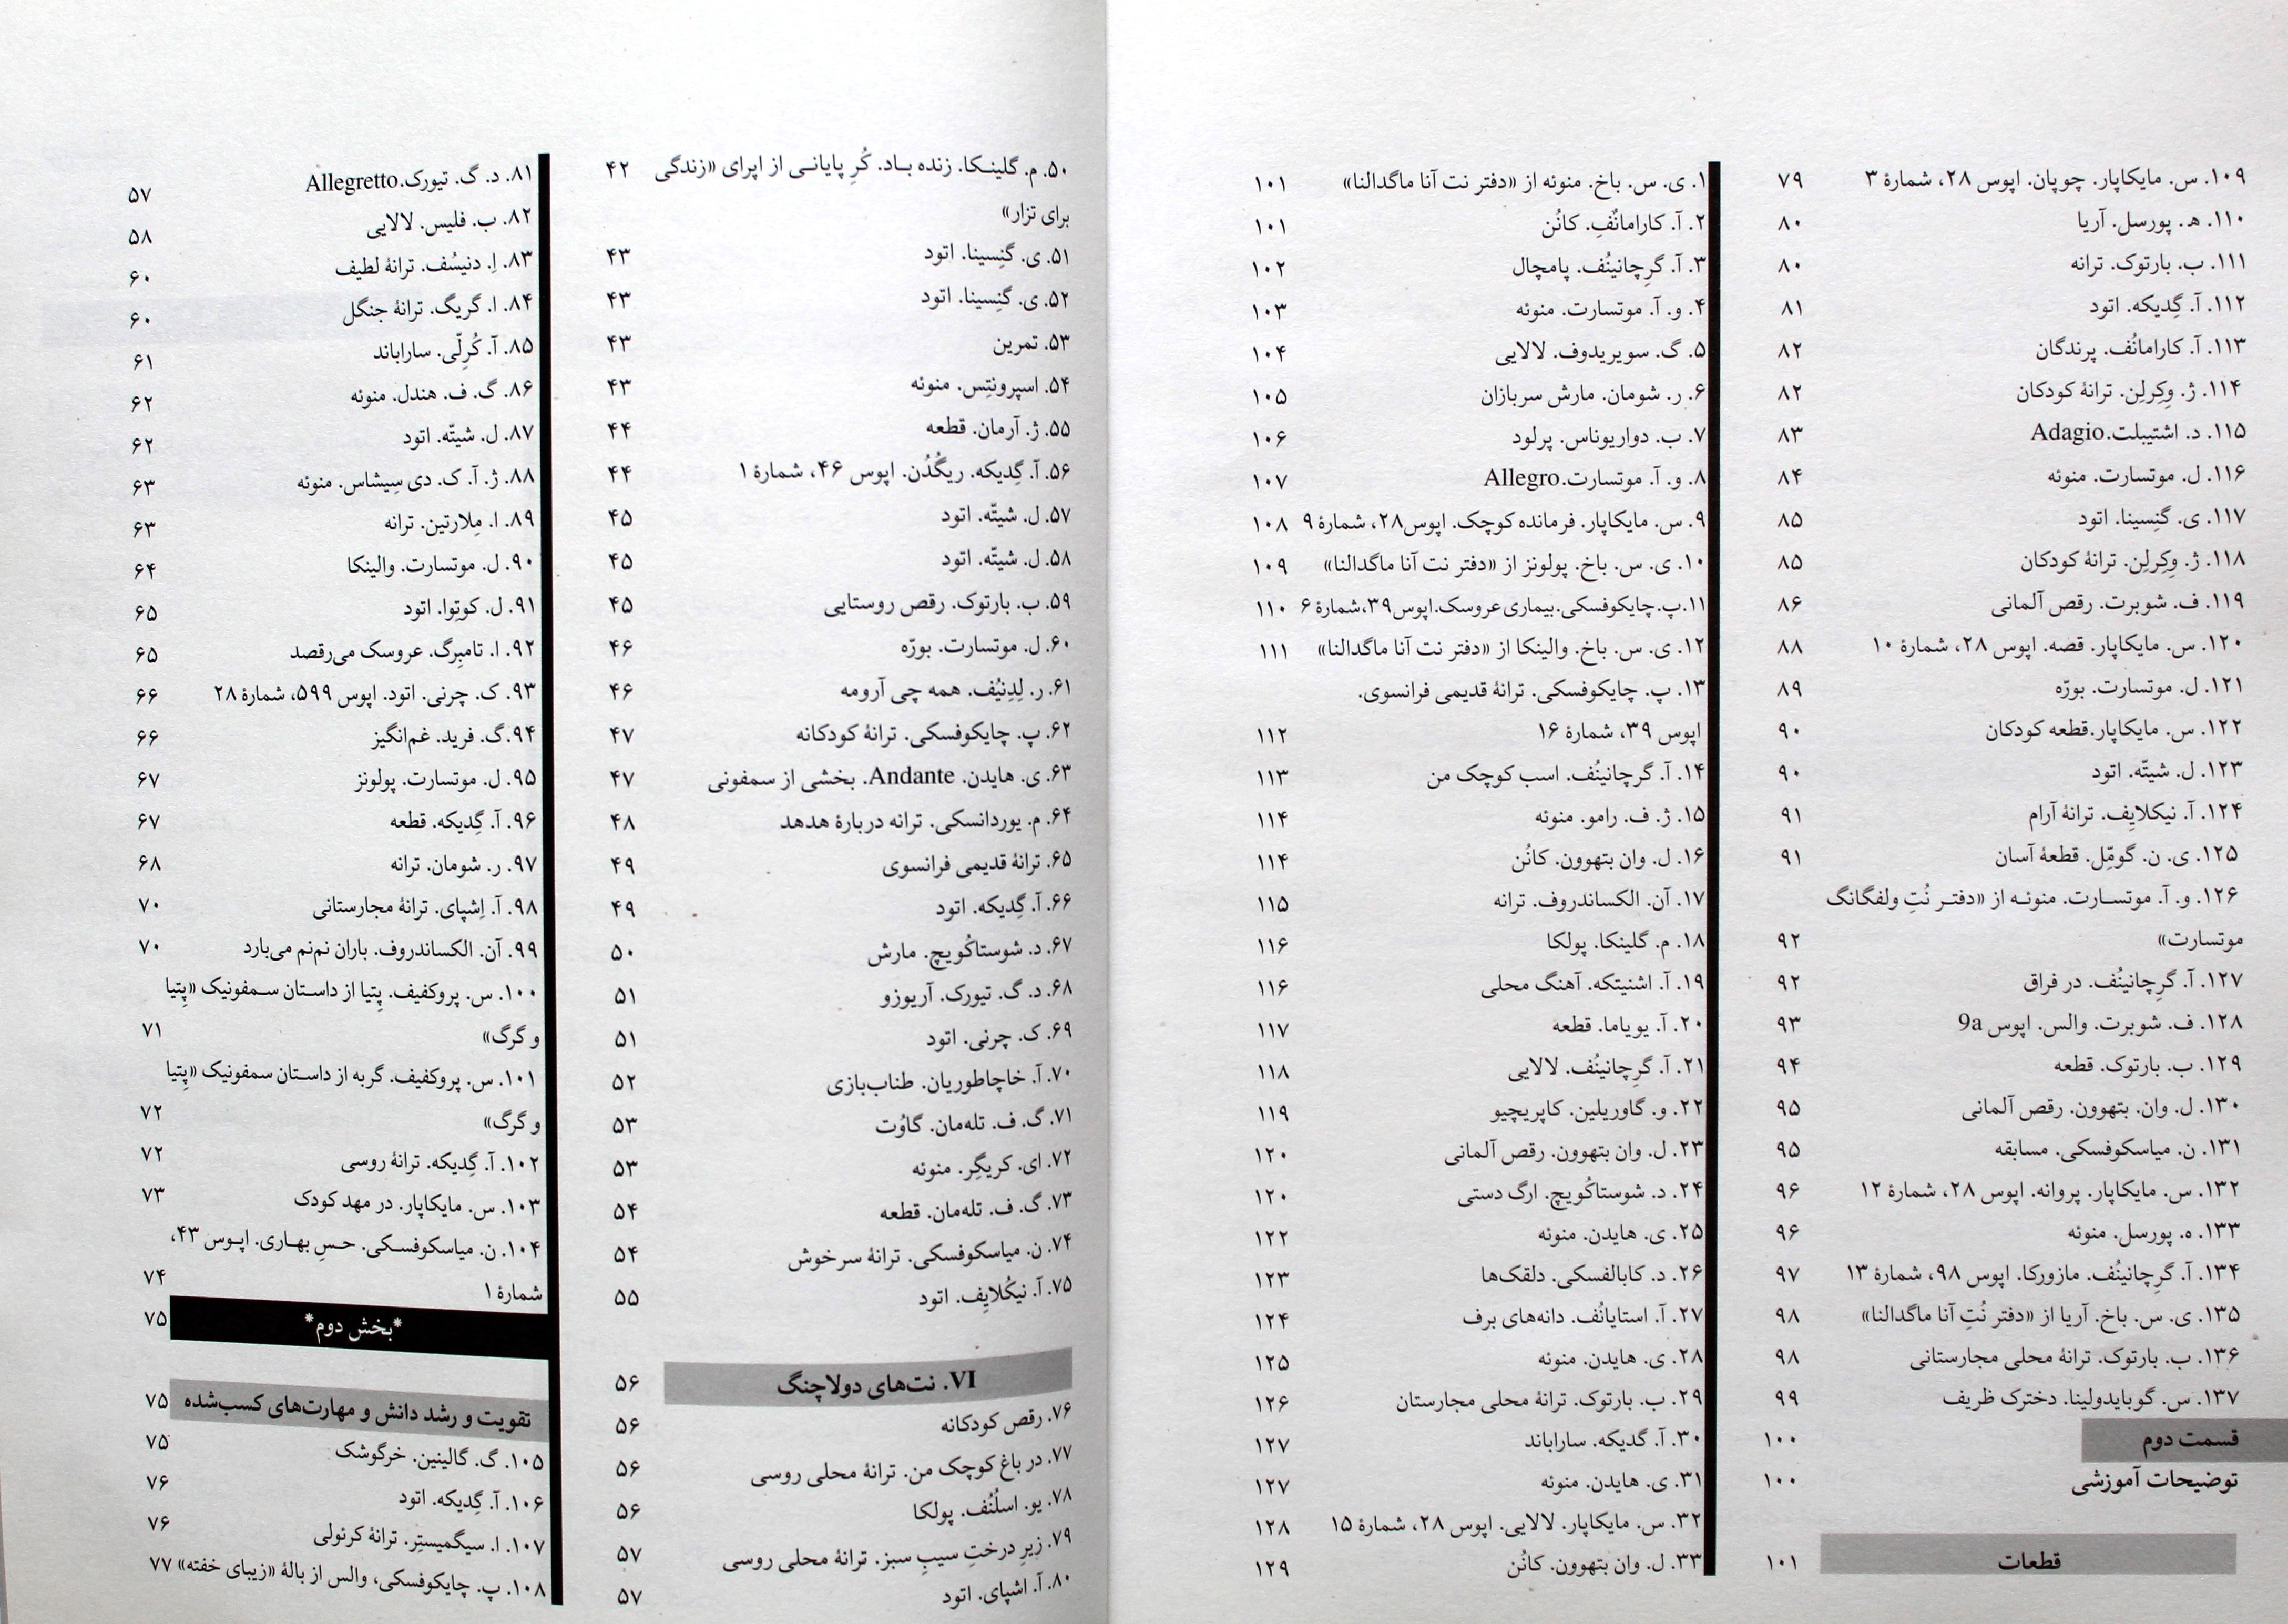 ۵۰. م. گلینکا. زنده باد. کُرِ پایانی از اپرای «زندگی ۴۲
برای تزار»
۵۱. ی. گنِسینا. اتود ۴۳
۵۲. ی. گنِسینا. اتود ۴۳
۵۳. تمرین ۴۳
۵۴. اسپرونتِس. منوئه ۴۳
۵۵. ژ. آرمان. قطعه ۴۴
۵۶. آ. گِدیکه. ریگُدُن. اپوس ۴۶، شمارهٔ ۱ ۴۴
۵۷. ل. شیتّه. اتود ۴۵
۵۸. ل. شیتّه. اتود ۴۵
۵۹. ب. بارتوک. رقص روستایی ۴۵
۶۰. ل. موتسارت. بورّه ۴۶
۶۱. ر. لِدِنیُف. همه چی آرومه ۴۶
۶۲. پ. چایکوفسکی. ترانهٔ کودکانه ۴۷
۶۳. ی. هایدن. Andante. بخشی از سمفونی ۴۷
۶۴. م. یوردانسکی. ترانه دربارهٔ هدهد ۴۸
۶۵. ترانهٔ قدیمی فرانسوی ۴۹
۶۶. آ. گِدیکه. اتود ۴۹
۶۷. د. شوستاکُویچ. مارش ۵۰
۶۸. د. گ. تیورک. آریوزو ۵۱
۶۹. ک. چرنی. اتود ۵۱
۷۰. آ. خاچاطوریان. طناب‌بازی ۵۲
۷۱. گ. ف. تله‌مان. گاوُت ۵۳
۷۲. ای. کریگِر. منوئه ۵۳
۷۳. گ. ف. تله‌مان. قطعه ۵۴
۷۴. ن. میاسکوفسکی. ترانهٔ سرخوش ۵۴
۷۵. آ. نیکُلایِف. اتود ۵۵
VI. نت‌های دولاچنگ ۵۶
۷۶. رقص کودکانه ۵۶
۷۷. در باغ کوچک من. ترانهٔ محلی روسی ۵۶
۷۸. یو. اسلُنُف. پولکا ۵۶
۷۹. زیرِ درختِ سیبِ سبز. ترانهٔ محلی روسی ۵۷
۸۰. آ. اشپای. اتود ۵۷
۸۱. د. گ. تیورک.Allegretto ۵۷
۸۲. ب. فلیس. لالایی ۵۸
۸۳. اِ. دنیسُف. ترانهٔ لطیف ۶۰
۸۴. ا. گریگ. ترانهٔ جنگل ۶۰
۸۵. آ. کُرِلّی. ساراباند ۶۱
۸۶. گ. ف. هندل. منوئه ۶۲
۸۷. ل. شیتّه. اتود ۶۲
۸۸. ژ. آ. ک. دی سِیشاس. منوئه ۶۳
۸۹. ا. مِلارتین. ترانه ۶۳
۹۰. ل. موتسارت. والینکا ۶۴
۹۱. ل. کوتِوا. اتود ۶۵
۹۲. ا. تامبِرگ. عروسک می‌رقصد ۶۵
۹۳. ک. چرنی. اتود. اپوس ۵۹۹، شمارهٔ ۲۸ ۶۶
۹۴. گ. فرید. غم‌انگیز ۶۶
۹۵. ل. موتسارت. پولونز ۶۷
۹۶. آ. گِدیکه. قطعه ۶۷
۹۷. ر. شومان. ترانه ۶۸
۹۸. آ. اِشپای. ترانهٔ مجارستانی ۷۰
۹۹. آن. الکساندروف. باران نم‌نم می‌بارد ۷۰
۱۰۰. س. پروکفیف. پِتیا از داستان سمفونیک «پِتیا
و گرگ» ۷۱
۱۰۱. س. پروکفیف. گربه از داستان سمفونیک «پِتیا
و گرگ» ۷۲
۱۰۲. آ. گِدیکه. ترانهٔ روسی ۷۲
۱۰۳. س. مایکاپار. در مهد کودک ۷۳
۱۰۴. ن. میاسکوفسکی. حسِ بهاری. اپوس ۴۳،
شمارهٔ ۱ ۷۴
*بخش دوم* ۷۵
تقویت و رشد دانش و مهارت‌های کسب‌شده ۷۵
۱۰۵. گ. گالینین. خرگوشک ۷۵
۱۰۶. آ. گِدیکه. اتود ۷۶
۱۰۷. ا. سیگمیستِر. ترانهٔ کرئولی ۷۶
۱۰۸. پ. چایکوفسکی، والس از بالهٔ «زیبای خفته» ۷۷
۱۰۹. س. مایکاپار. چوپان. اپوس ۲۸، شمارهٔ ۳ ۷۹
۱۱۰. ه. پورسل. آریا ۸۰
۱۱۱. ب. بارتوک. ترانه ۸۰
۱۱۲. آ. گِدیکه. اتود ۸۱
۱۱۳. آ. کارامانُف. پرندگان ۸۲
۱۱۴. ژ. وِکِرلِن. ترانهٔ کودکان ۸۲
۱۱۵. د. اشتیبلت.Adagio ۸۳
۱۱۶. ل. موتسارت. منوئه ۸۴
۱۱۷. ی. گنِسینا. اتود ۸۵
۱۱۸. ژ. وِکِرلِن. ترانهٔ کودکان ۸۵
۱۱۹. ف. شوبرت. رقص آلمانی ۸۶
۱۲۰. س. مایکاپار. قصه. اپوس ۲۸، شمارهٔ ۱۰ ۸۸
۱۲۱. ل. موتسارت. بورّه ۸۹
۱۲۲. س. مایکاپار.قطعه کودکان ۹۰
۱۲۳. ل. شیتّه. اتود ۹۰
۱۲۴. آ. نیکلایِف. ترانهٔ آرام ۹۱
۱۲۵. ی. ن. گومّل. قطعهٔ آسان ۹۱
۱۲۶. و. آ. موتسارت. منوئه از «دفتر نُتِ ولفگانگ
موتسارت» ۹۲
۱۲۷. آ. گرِچانینُف. در فراق ۹۲
۱۲۸. ف. شوبرت. والس. اپوس 9a ۹۳
۱۲۹. ب. بارتوک. قطعه ۹۴
۱۳۰. ل. وان. بتهوون. رقص آلمانی ۹۵
۱۳۱. ن. میاسکوفسکی. مسابقه ۹۵
۱۳۲. س. مایکاپار. پروانه. اپوس ۲۸، شمارهٔ ۱۲ ۹۶
۱۳۳. ه. پورسل. منوئه ۹۶
۱۳۴. آ. گرِچانینُف. مازورکا. اپوس ۹۸، شمارهٔ ۱۳ ۹۷
۱۳۵. ی. س. باخ. آریا از «دفتر نُتِ آنا ماگدالنا» ۹۸
۱۳۶. ب. بارتوک. ترانهٔ محلی مجارستانی ۹۸
۱۳۷. س. گوبایدولینا. دخترک ظریف ۹۹
قسمت دوم ۱۰۰
توضیحات آموزشی ۱۰۰
قطعات ۱۰۱
۱. ی. س. باخ. منوئه از «دفتر نت آنا ماگدالنا» ۱۰۱
۲. آ. کارامانُفِ. کانُن ۱۰۱
۳. آ. گرِچانینُف. پامچال ۱۰۲
۴. و. آ. موتسارت. منوئه ۱۰۳
۵. گ. سویریدوف. لالایی ۱۰۴
۶. ر. شومان. مارش سربازان ۱۰۵
۷. ب. دواریوناس. پرلود ۱۰۶
۸. و. آ. موتسارت.Allegro ۱۰۷
۹. س. مایکاپار. فرمانده کوچک. اپوس۲۸، شمارهٔ ۹ ۱۰۸
۱۰. ی. س. باخ. پولونز از «دفتر نت آنا ماگدالنا» ۱۰۹
۱۱.پ.چایکوفسکی.بیماری عروسک.اپوس۳۹،شمارهٔ ۶ ۱۱۰
۱۲. ی. س. باخ. والینکا از «دفتر نت آنا ماگدالنا» ۱۱۱
۱۳. پ. چایکوفسکی. ترانهٔ قدیمی فرانسوی.
اپوس ۳۹، شمارهٔ ۱۶ ۱۱۲
۱۴. آ. گرچانینُف. اسب کوچک من ۱۱۳
۱۵. ژ. ف. رامو. منوئه ۱۱۴
۱۶. ل. وان بتهوون. کانُن ۱۱۴
۱۷. آن. الکساندروف. ترانه ۱۱۵
۱۸. م. گلینکا. پولکا ۱۱۶
۱۹. آ. اشنیتکه. آهنگ محلی ۱۱۶
۲۰. آ. یویاما. قطعه ۱۱۷
۲۱. آ. گرِچانینُف. لالایی ۱۱۸
۲۲. و. گاوریلین. کاپریچیو ۱۱۹
۲۳. ل. وان بتهوون. رقص آلمانی ۱۲۰
۲۴. د. شوستاکُویچ. ارگ دستی ۱۲۰
۲۵. ی. هایدن. منوئه ۱۲۲
۲۶. د. کابالفسکی. دلقک‌ها ۱۲۳
۲۷. آ. استایانُف. دانه‌های برف ۱۲۴
۲۸. ی. هایدن. منوئه ۱۲۵
۲۹. ب. بارتوک. ترانهٔ محلی مجارستان ۱۲۶
۳۰. آ. گدیکه. ساراباند ۱۲۷
۳۱. ی. هایدن. منوئه ۱۲۷
۳۲. س. مایکاپار. لالایی. اپوس ۲۸، شمارهٔ ۱۵ ۱۲۸
۳۳. ل. وان بتهوون. کانُن ۱۲۹